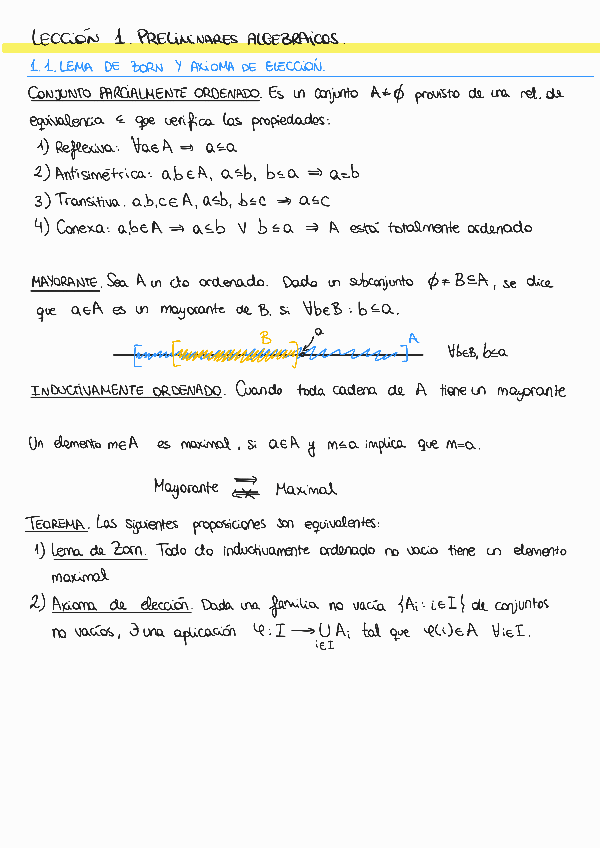 LECCIÓN 1. PRELIMINARES ALGEBRAICOS.
1.1. LEMA DE ZORN Y AXIOMA DE ELECCIÓN.
CONJUNTO PARCIALMENTE ORDENADO. Es un conjunto A≠∅ provisto de una rel. de
equivalencia ≤ que verifica las propiedades:
1) Reflexiva: ∀a∈A ⇒ a≤a
2) Antisimétrica: a,b∈A, a≤b, b≤a ⇒ a=b
3) Transitiva. a,b,c∈A, a≤b, b≤c ⇒ a≤c
4) Conexa: a,b∈A ⇒ a≤b ∨ b≤a ⇒ A está totalmente ordenado
MAYORANTE. Sea A un cto ordenado. Dado un subconjunto ∅≠B⊆A, se dice
que a∈A es un mayorante de B, si ∀b∈B : b≤a.
B a A
∀b∈B, b≤a
INDUCTIVAMENTE ORDENADO. Cuando toda cadena de A tiene un mayorante
Un elemento m∈A es maximal, si a∈A y m≤a implica que m=a.
Mayorante ⇏ ⇐ Maximal
TEOREMA. Las siguientes proposiciones son equivalentes:
1) Lema de Zorn. Todo cto inductivamente ordenado no vacío tiene un elemento
maximal
2) Axioma de elección. Dada una familia no vacía {Ai : i∈I} de conjuntos
no vacíos, ∃ una aplicación φ: I → ∪ Ai tal que φ(i)∈A ∀i∈I.
i∈I